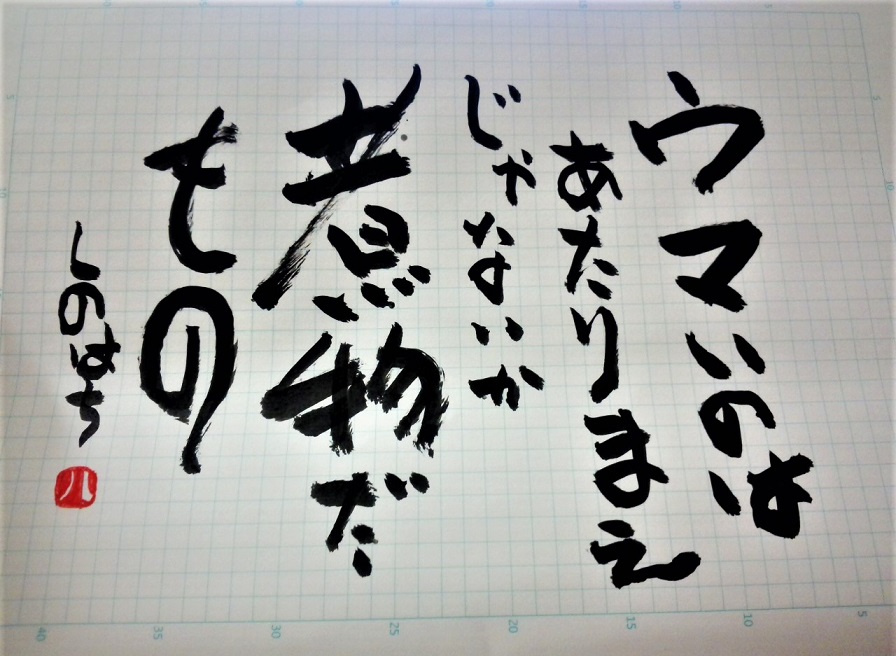 ウマいのは
あたりまえ
じゃないか
煮物だ
もの
しのはち
八
5
10
15
20
25
30
35
40